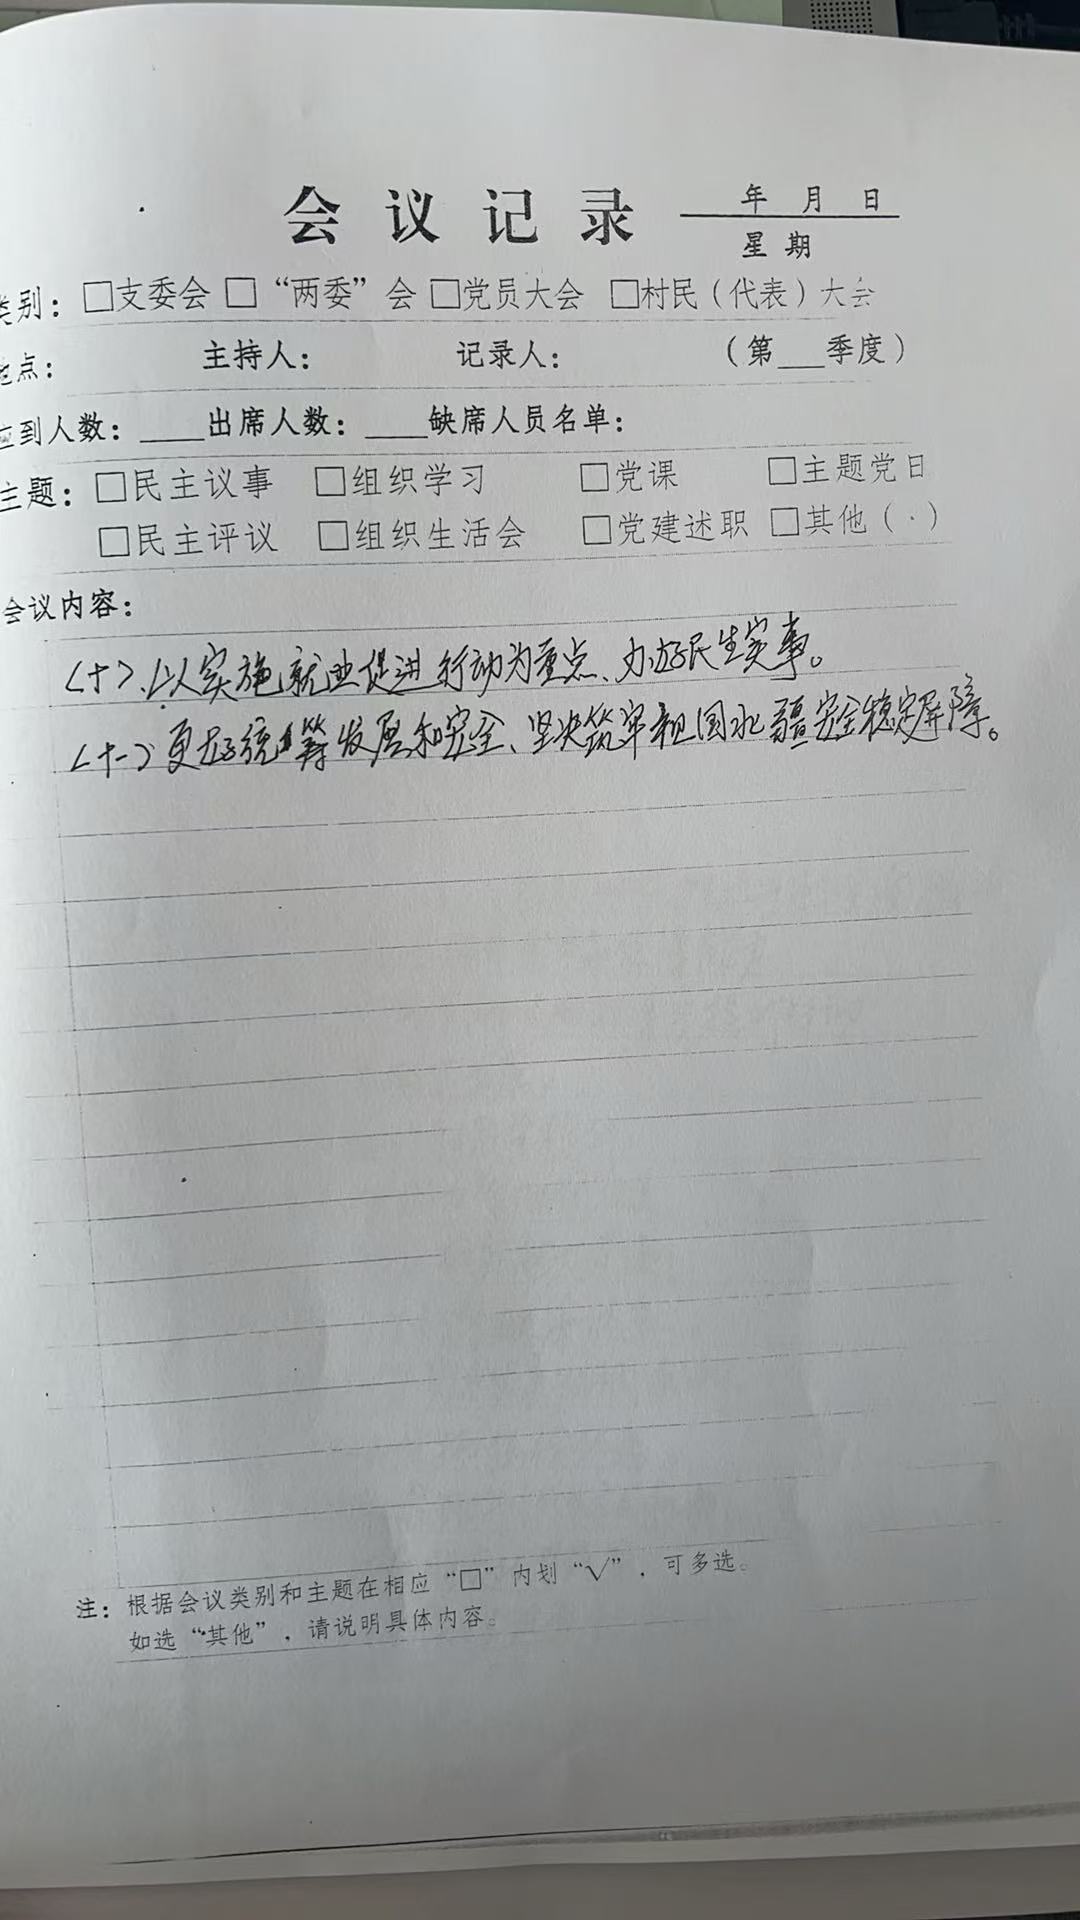 会议记录 年 月 日
星期
类别：□支委会 □“两委”会 □党员大会 □村民（代表）大会
地点： 主持人： 记录人： （第___季度）
应到人数：____出席人数：____缺席人员名单：
主题：□民主议事 □组织学习 □党课 □主题党日
□民主评议 □组织生活会 □党建述职 □其他（ ）
会议内容：
（十）、以实施就业促进行动为重点、办好民生实事。
（十一）更好统筹发展和安全、坚决筑牢祖国北疆安全稳定屏障。
注：根据会议类别和主题在相应“□”内划“√”，可多选。
如选“其他”，请说明具体内容。